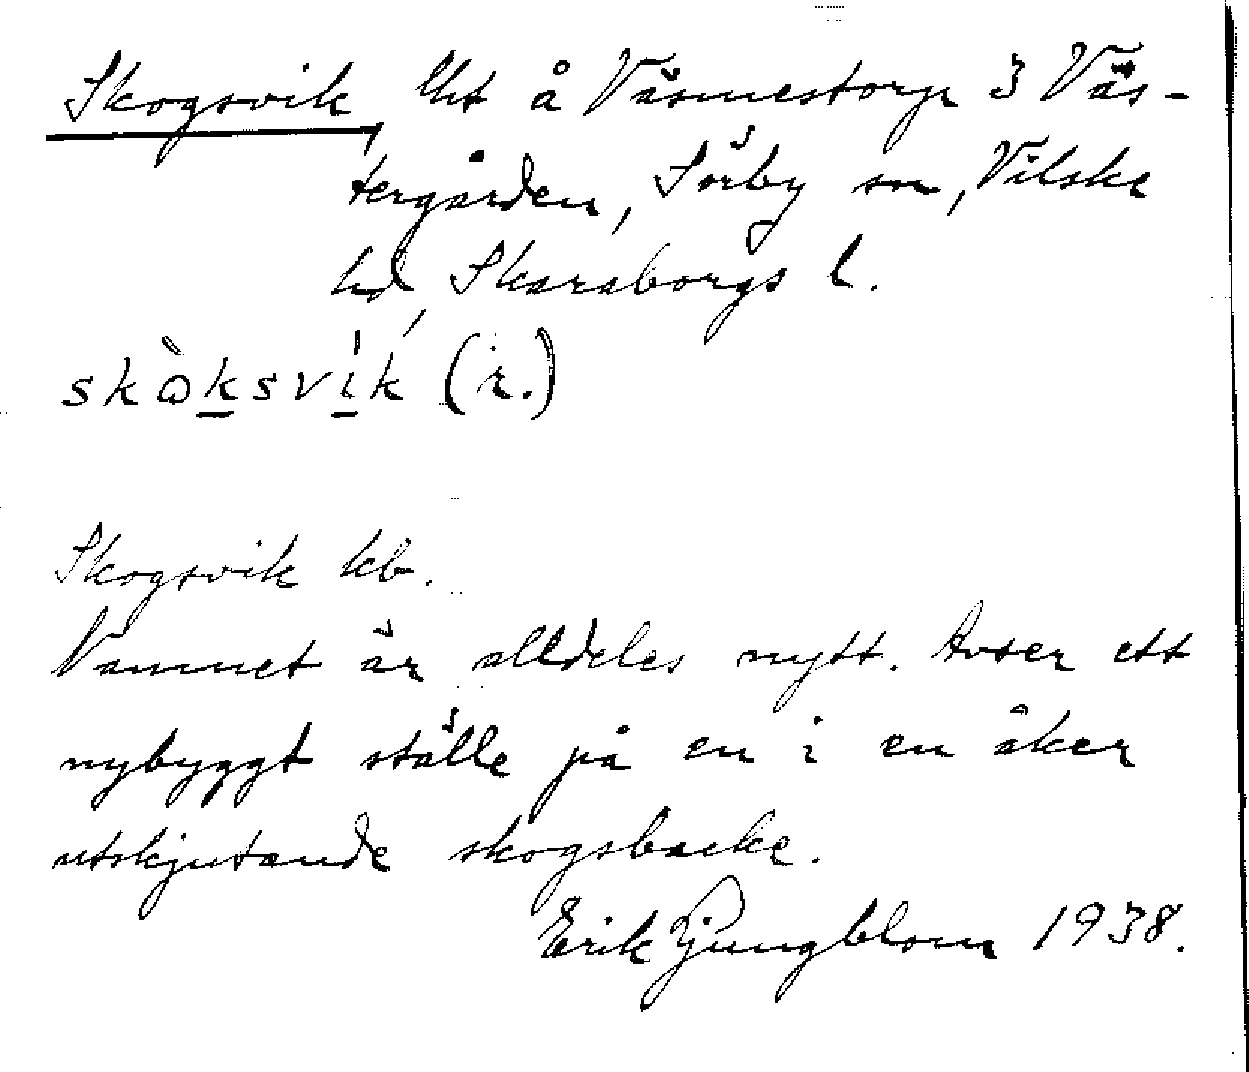 Skogsvik, lht å Väsmestorp 3 Väs-
tergården, Sörby sn, Vilske
hd, Skaraborgs l.
skὼksvi̍k (r.)
Skogsvik kb.
Namnet är alldeles nytt. Avser ett
nybyggt ställe på en i en åker
utskjutande skogsbacke.
Erik Ljungblom 1938.